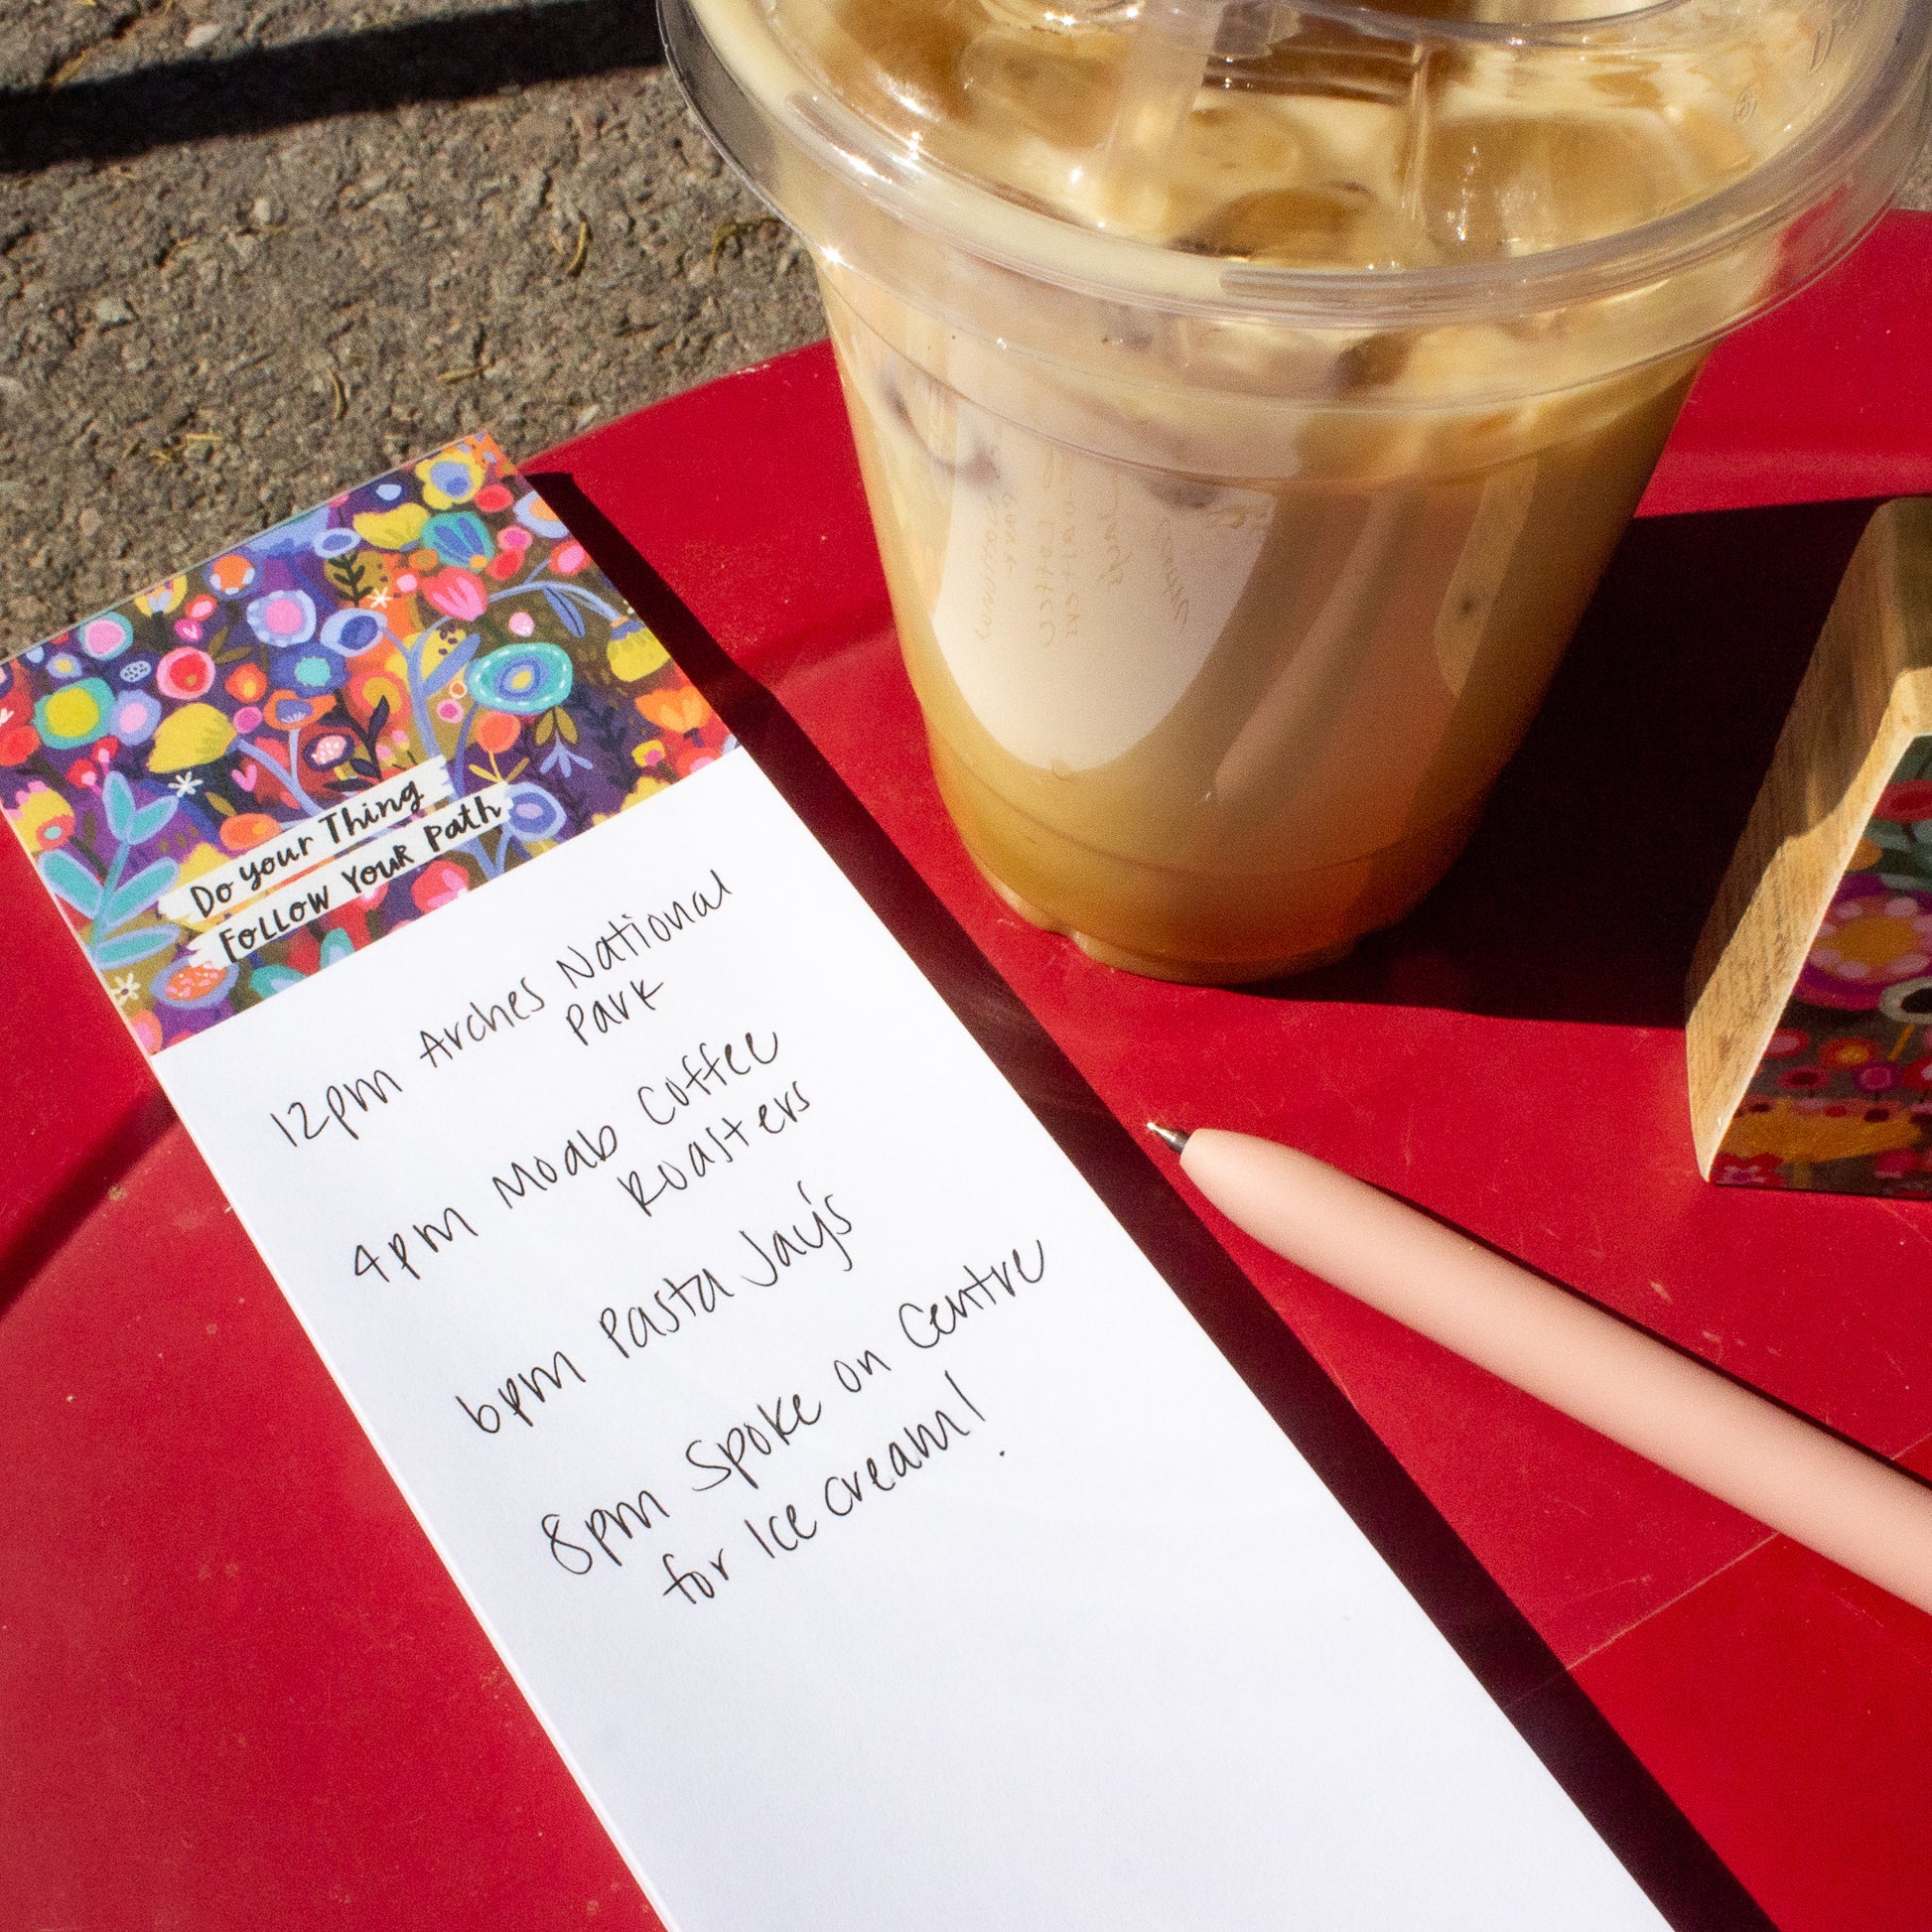 Do your Thing
Follow Your Path
12pm Arches National
Park
4pm Moab Coffee
Roasters
6pm Pasta Jay's
8pm Spoke on Centre
for Ice cream!